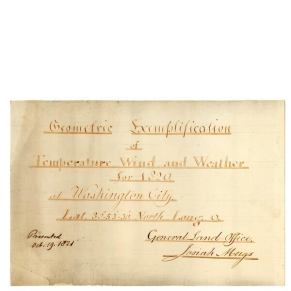 Geometric Exemplification
of
Temperature Wind and Weather
for 1820
at Washington City
Lat. 38.53.30 North Long. 0
Presented
Oct. 19. 1821
General Land Office,
Josiah Meigs